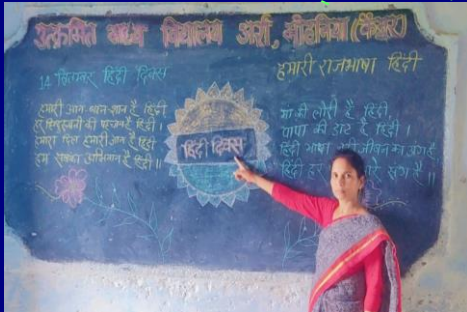 उत्क्रमित मध्य विद्यालय अर्रा, मोहनिया (कैमूर)
14 सितम्बर हिंदी दिवस
हमारी आन बान शान है हिंदी
हर हिन्दुस्तानी की पहचान है हिंदी।
हमारा दिल हमारी जान है हिंदी
हम सबका अभिमान है हिंदी॥
हिंदी दिवस
हमारी राजभाषा हिंदी
माँ की लोरी है हिंदी,
पापा की डाट है हिंदी।
हिंदी भाषा जीवन का अंग है
हिंदी हर संग है॥